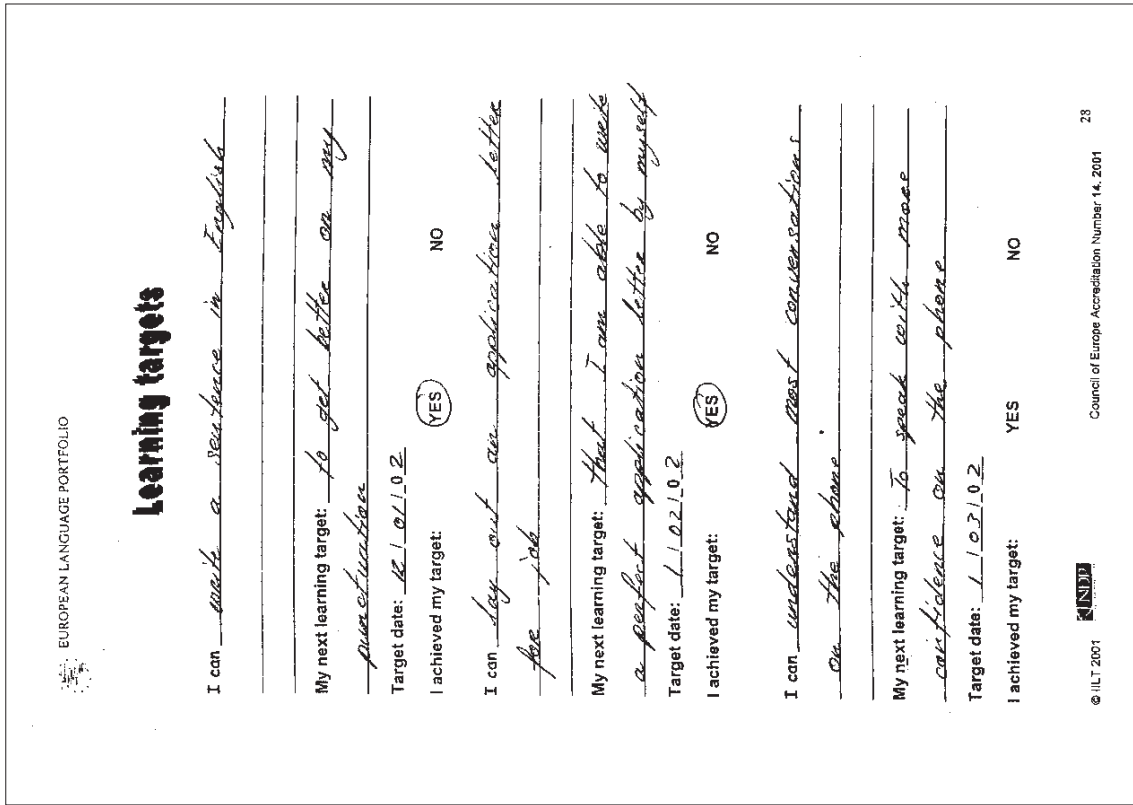 EUROPEAN LANGUAGE PORTFOLIO
Learning targets
I can write a sentence in English
My next learning target: to get better on my
punctuation
Target date: 12/01/02
I achieved my target: YES NO
I can lay out an application letter
for job
My next learning target: that I am able to write
a perfect application letter by myself
Target date: 1/02/02
I achieved my target: YES NO
I can understand most conversations
on the phone
My next learning target: To speak with more
confidence on the phone
Target date: 1/03/02
I achieved my target: YES NO
© IILT 2001 Council of Europe Accreditation Number 14. 2001 28